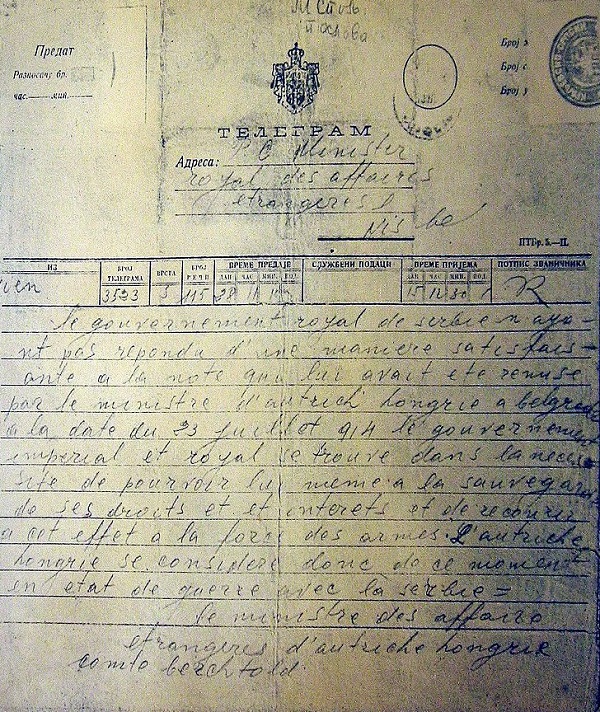 Предат
Разносачу бр.
час. мин.
ТЕЛЕГРАМ
Адреса:
Minister
royal des affaires
etrangeres
Nis
Број
Број
Број
ПТБр. 5.—II.
ИЗ
БРОЈ ТЕЛЕГРАМА
ВРСТА
БРОЈ РЕЧИ
ВРЕМЕ ПРЕДАЈЕ
ДАН ЧАС МИН.
СЛУЖБЕНИ ПОДАЦИ
ВРЕМЕ ПРИЈЕМА
ДАН ЧАС МИН.
ПОТПИС ЗВАНИЧНИКА
3523 5 115 28
le gouvernement royal de serbie n aya-
nt pas repondu d'une maniere satisfais=
ante a la note qui lui avait ete remise
par le ministre d'autrich hongrie a belgrade
a la date du 23 juillot 914 le gouvernement
imperial et royal se trouve dans la neces-
site de pourvoir lui meme a la sauvegard
de ses droits et et interets et de recourir
a cot effet a la force des armes. L'autriche
hongrie se considere donc de ce moment
en etat de guerre avec la serbie =
le ministre des affaire
etrangeres d'autriche hongrie
comte berchtold.